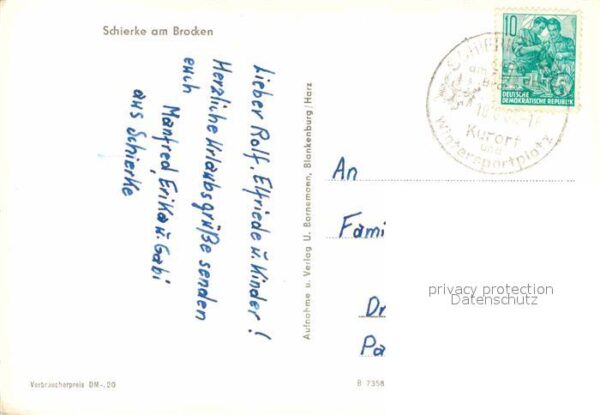 Schierke am Brocken
Lieber Rolf, Elfriede u. Kinder!
Herzliche Urlaubsgrüße senden
euch
Manfred, Erika u. Gabi
aus Schierke
Verbraucherpreis DM -.20
Aufnahme u. Verlag U. Bornemann, Blankenburg/Harz
B 7358
10
DEUTSCHE
DEMOKRATISCHE REPUBLIK
SCHIERKE
am
Kurort
und
Wintersportplatz
An
Fami
Dr
Pa
privacy protection
Datenschutz